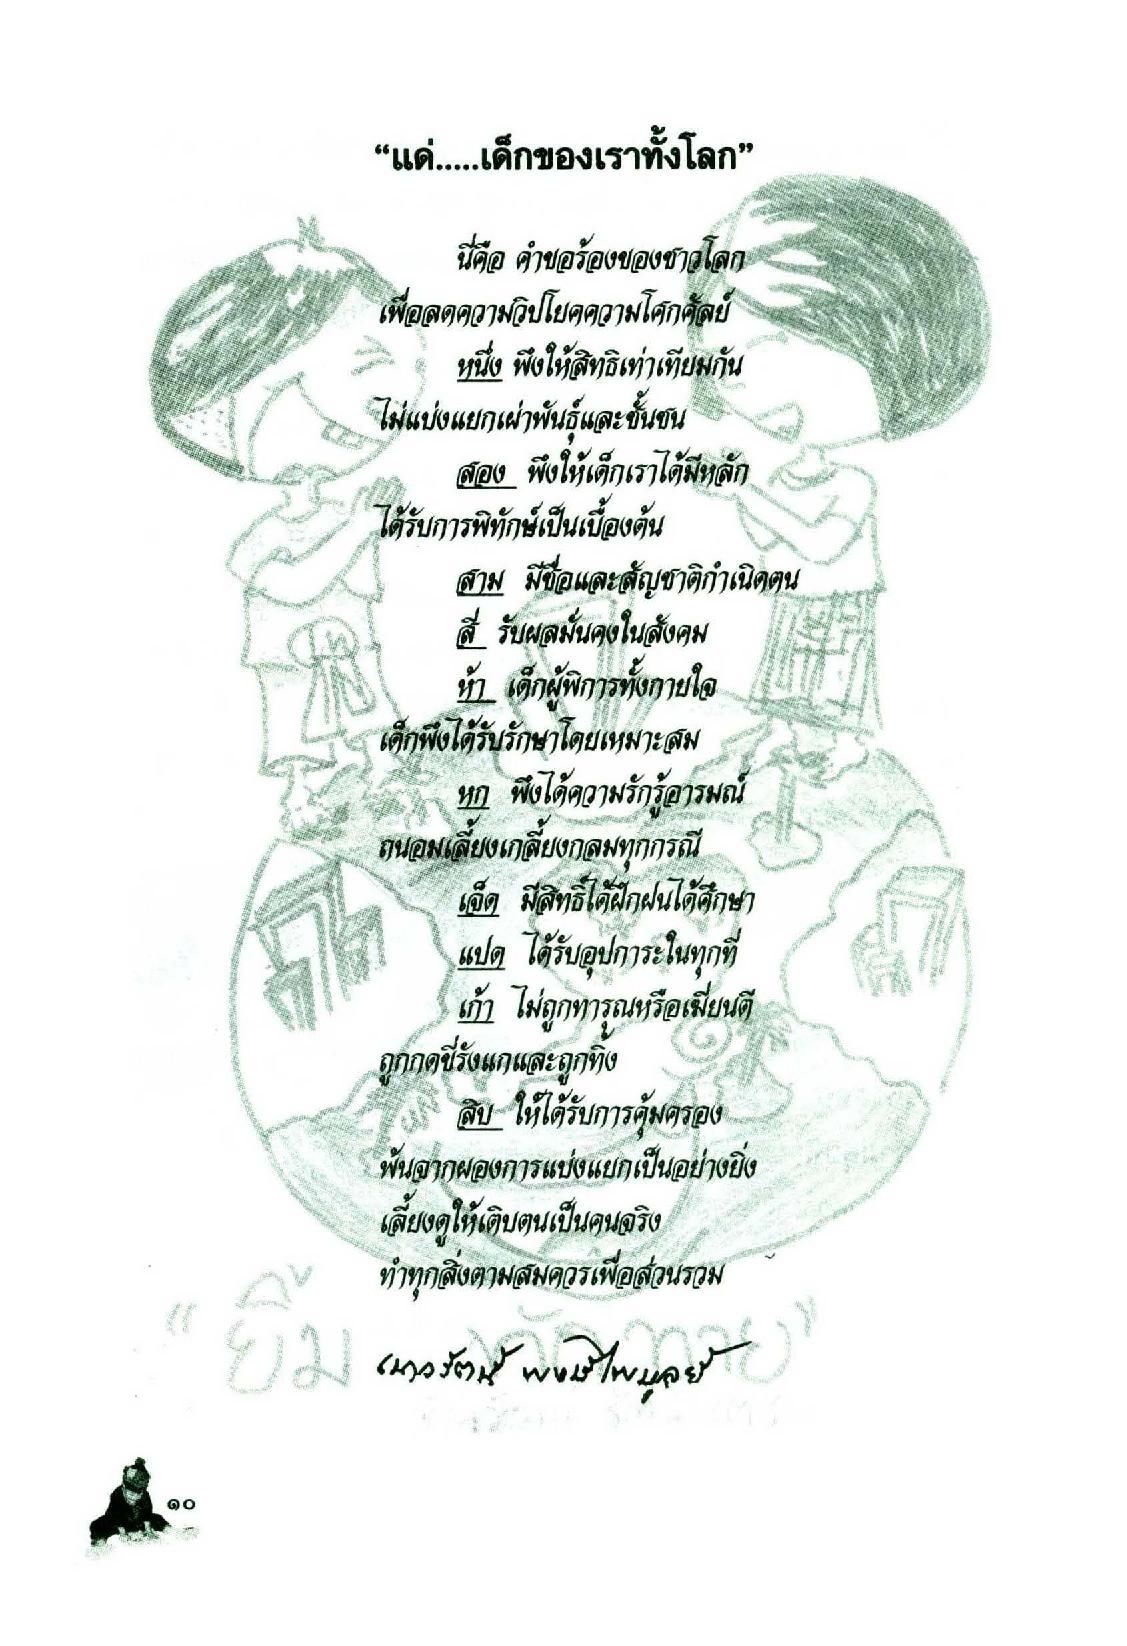 “แด่.....เด็กของเราทั้งโลก”
นี่คือ คำขอร้องของชาวโลก
เพื่อลดความวิปโยคความโศกศัลย์
หนึ่ง พึงให้สิทธิเท่าเทียมกัน
ไม่แบ่งแยกเผ่าพันธุ์และชั้นชน
สอง พึงให้เด็กเราได้มีหลัก
ได้รับการพิทักษ์เป็นเบื้องต้น
สาม มีชื่อและสัญชาติกำเนิดตน
สี่ รับผลมั่นคงในสังคม
ห้า เด็กผู้พิการทั้งกายใจ
เด็กพึงได้รับรักษาโดยเหมาะสม
หก พึงได้ความรักรู้อารมณ์
ถนอมเลี้ยงเกลี้ยงกลมทุกกรณี
เจ็ด มีสิทธิ์ได้ฝึกฝนได้ศึกษา
แปด ได้รับอุปการะในทุกที่
เก้า ไม่ถูกทารุณหรือเฆี่ยนตี
ถูกกดขี่รังแกและถูกทิ้ง
สิบ ให้ได้รับการคุ้มครอง
พ้นจากผองการแบ่งแยกเป็นอย่างยิ่ง
เลี้ยงดูให้เติบตนเป็นคนจริง
ทำทุกสิ่งตามสมควรเพื่อส่วนรวม
“ยิ้ม
เนาวรัตน์ พงษ์ไพบูลย์
๑๐